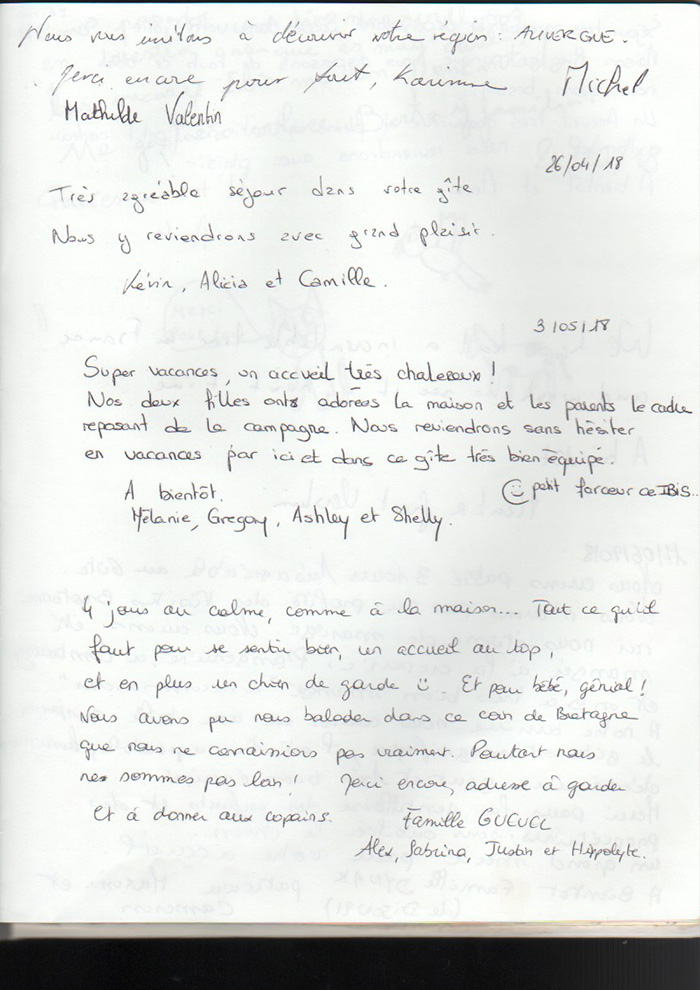 Nous vous invitons à découvrir notre région : AUVERGNE.
Merci encore pour tout, Karinne Michel
Mathilde Valentin
26/04/18
Très agréable séjour dans votre gîte
Nous y reviendrons avec grand plaisir.
Kévin, Alicia et Camille.
3/05/18
Super vacances, un accueil très chaleureux !
Nos deux filles onts adorées la maison et les parents le cadre
reposant de la campagne. Nous reviendrons sans hésiter
en vacances par ici et dans ce gîte très bien équipé.
A bientôt. petit farceur ce IBIS...
Mélanie, Gregory, Ashley et Shelly.
4 jours au calme, comme à la maison... Tout ce qu'il
faut pour se sentir bien, un accueil au top,
et en plus un chien de garde. Et pour bébé, génial !
Nous avons pu nous balader dans ce coin de Bretagne
que nous ne connaissions pas vraiment. Pourtant nous
ne sommes pas loin ! Merci encore, adresse à garder
et à donner aux copains. Famille
Alex, Sabrina, Justin et Hippolyte.